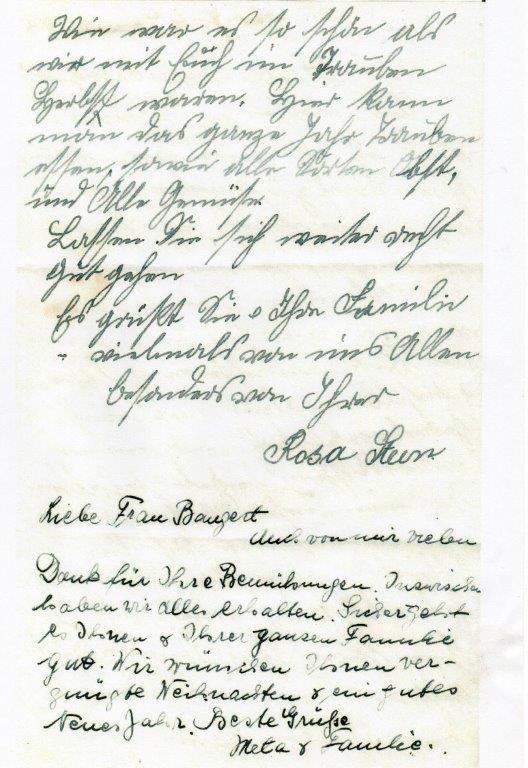 Wie war es so schön als
wir mit Euch im Trauben
Herbst waren. Hier kann
man das ganze Jahr Trauben
essen, sowie alle Sorten Obst,
und Alle Gemüse.
Lassen Sie sich weiter recht
gut gehen
Es grüßt Sie & Ihre Familie
vielmals von uns Allen
besonders von Ihrer
Rosa Stern
Liebe Frau Bangert
Auch von mir vielen
Dank für Ihre Bemühungen. Inzwischen
haben wir alles erhalten. Sicher geht
es Ihnen & Ihrer ganzen Familie
gut. Wir wünschen Ihnen ver-
gnügte Weihnachten & ein gutes
Neues Jahr. Beste Grüße
Meta & Familie.